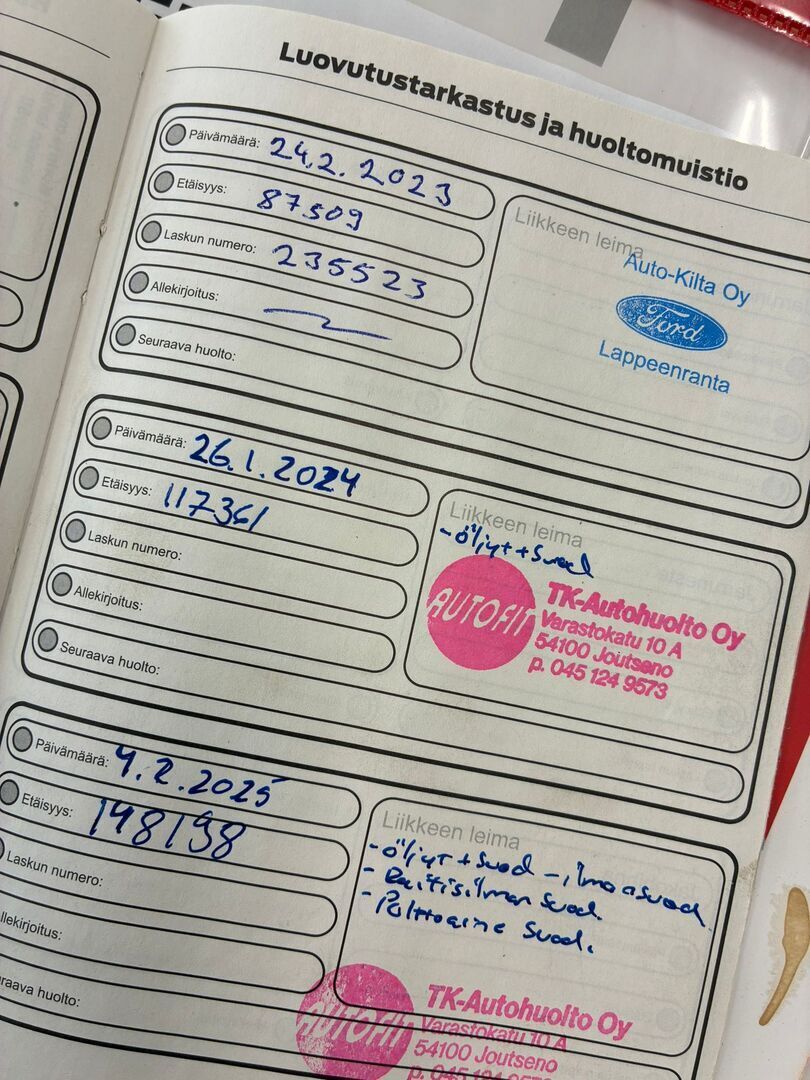 Luovutustarkastus ja huoltomuistio
Päivämäärä: 24.2.2023
Etäisyys: 87509
Laskun numero: 235523
Allekirjoitus:
Seuraava huolto:
Liikkeen leima
Auto-Kilta Oy
Ford
Lappeenranta
Päivämäärä: 26.1.2024
Etäisyys: 117361
Laskun numero:
Allekirjoitus:
Seuraava huolto:
Liikkeen leima
- öljyt + suod
AUTOFIT
TK-Autohuolto Oy
Varastokatu 10 A
54100 Joutseno
p. 045 124 9573
Päivämäärä: 4.2.2025
Etäisyys: 148198
Laskun numero:
llekirjoitus:
raava huolto:
Liikkeen leima
- öljyt + suod - ilmansuod
- Raitisilman suod.
- Polttoaine suod.
AUTOFIT
TK-Autohuolto Oy
Varastokatu 10 A
54100 Joutseno